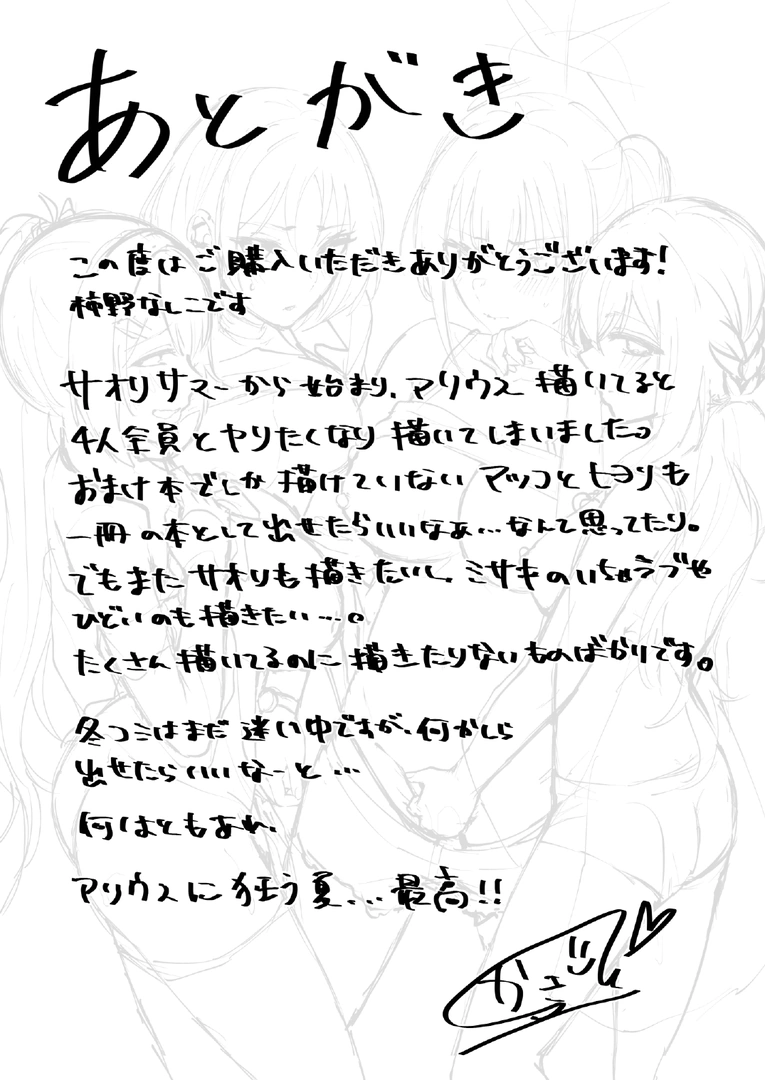 あとがき
この度はご購入いただきありがとうございます!
柿野なしこです
サオリサマーから始まり、アリウス描いてると
4人全員とヤリたくなり描いてしまいました。
おまけ本でしか描けていないアツコとヒヨリも
一冊の本として出せたらいいなぁ…なんて思ってたり。
でもまたサオリも描きたいし、ミサキのいちゃラブや
ひどいのも描きたい…。
たくさん描いてるのに描きたりないものばかりです。
冬コミはまだ迷い中ですが、何かしら
出せたらいいなーと…
何はともあれ、
アリウスに狂う夏...最高!!